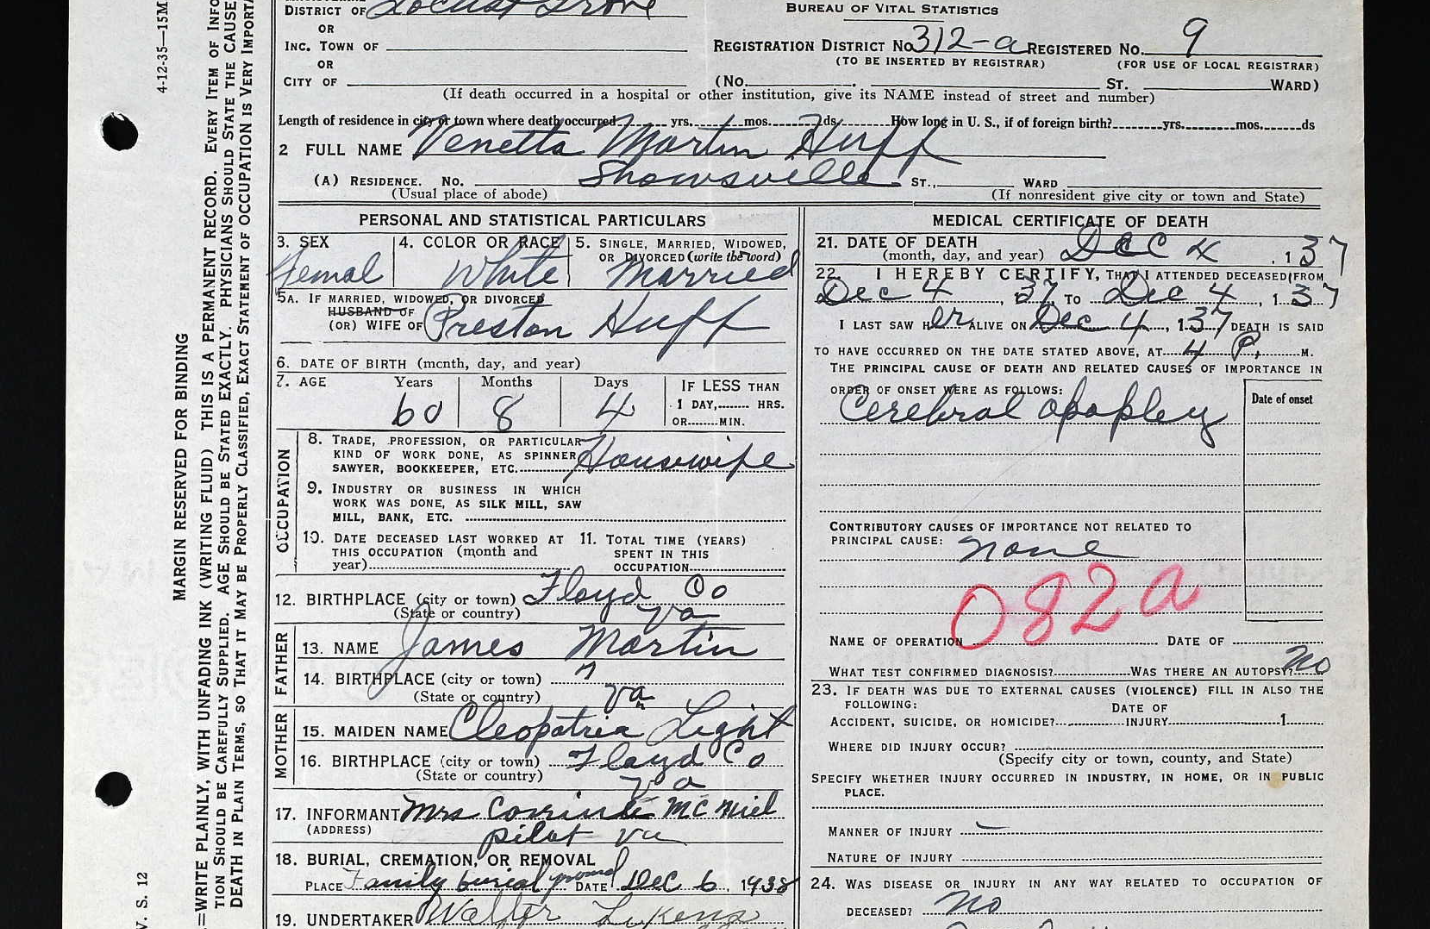 DISTRICT OF Locust Grove
BUREAU OF VITAL STATISTICS
OR
INC. TOWN OF
REGISTRATION DISTRICT No 312-a REGISTERED NO. 9
(TO BE INSERTED BY REGISTRAR) (FOR USE OF LOCAL REGISTRAR)
OR
CITY OF (No. ST. WARD)
(If death occurred in a hospital or other institution, give its NAME instead of street and number)
Length of residence in city or town where death occurred yrs. mos. ds. How long in U. S., if of foreign birth? yrs. mos. ds
2 FULL NAME Venetta Martin Huff
(A) RESIDENCE. NO. Showsville ST., WARD
(Usual place of abode) (If nonresident give city or town and State)
PERSONAL AND STATISTICAL PARTICULARS
3. SEX 4. COLOR OR RACE 5. SINGLE, MARRIED, WIDOWED,
OR DIVORCED (write the word)
Femal White Married
5A. IF MARRIED, WIDOWED, OR DIVORCED
HUSBAND OF
(OR) WIFE OF Preston Huff
6. DATE OF BIRTH (month, day, and year)
7. AGE Years Months Days IF LESS THAN
1 DAY, HRS.
60 8 4 OR MIN.
OCCUPATION
8. TRADE, PROFESSION, OR PARTICULAR
KIND OF WORK DONE, AS SPINNER Housewife
SAWYER, BOOKKEEPER, ETC.
9. INDUSTRY OR BUSINESS IN WHICH
WORK WAS DONE, AS SILK MILL, SAW
MILL, BANK, ETC.
10. DATE DECEASED LAST WORKED AT 11. TOTAL TIME (YEARS)
THIS OCCUPATION (month and SPENT IN THIS
year) OCCUPATION
12. BIRTHPLACE (city or town) Floyd Co
(State or country) Va
FATHER
13. NAME James Martin
14. BIRTHPLACE (city or town) "
(State or country) Va
MOTHER
15. MAIDEN NAME Cleopatria Light
16. BIRTHPLACE (city or town) Floyd Co
(State or country) Va
17. INFORMANT Mrs Corrinde McNiel
(ADDRESS) pilot Va
18. BURIAL, CREMATION, OR REMOVAL
PLACE Family burial ground DATE Dec 6, 1938
19. UNDERTAKER Walter Likens
MEDICAL CERTIFICATE OF DEATH
21. DATE OF DEATH Dec 4, 137
(month, day, and year)
22. I HEREBY CERTIFY, THAT I ATTENDED DECEASED FROM
Dec 4, 37 TO Dec 4, 137
I LAST SAW HER ALIVE ON Dec 4, 137 DEATH IS SAID
TO HAVE OCCURRED ON THE DATE STATED ABOVE, AT 4 P. M.
THE PRINCIPAL CAUSE OF DEATH AND RELATED CAUSES OF IMPORTANCE IN
ORDER OF ONSET WERE AS FOLLOWS: Date of onset
Cerebral apopley
CONTRIBUTORY CAUSES OF IMPORTANCE NOT RELATED TO
PRINCIPAL CAUSE: none
082a
NAME OF OPERATION DATE OF
WHAT TEST CONFIRMED DIAGNOSIS? WAS THERE AN AUTOPSY? no
23. IF DEATH WAS DUE TO EXTERNAL CAUSES (VIOLENCE) FILL IN ALSO THE
FOLLOWING:
DATE OF
ACCIDENT, SUICIDE, OR HOMICIDE? INJURY 1
WHERE DID INJURY OCCUR?
(Specify city or town, county, and State)
SPECIFY WHETHER INJURY OCCURRED IN INDUSTRY, IN HOME, OR IN PUBLIC
PLACE.
MANNER OF INJURY
NATURE OF INJURY
24. WAS DISEASE OR INJURY IN ANY WAY RELATED TO OCCUPATION OF
DECEASED? no
V. S. 12
4-12-35—15M
MARGIN RESERVED FOR BINDING
WRITE PLAINLY, WITH UNFADING INK (WRITING FLUID) THIS IS A PERMANENT RECORD. EVERY ITEM OF
TION SHOULD BE CAREFULLY SUPPLIED. AGE SHOULD BE STATED EXACTLY. PHYSICIANS SHOULD STATE THE CAUSE
DEATH IN PLAIN TERMS, SO THAT IT MAY BE PROPERLY CLASSIFIED, EXACT STATEMENT OF OCCUPATION IS VERY